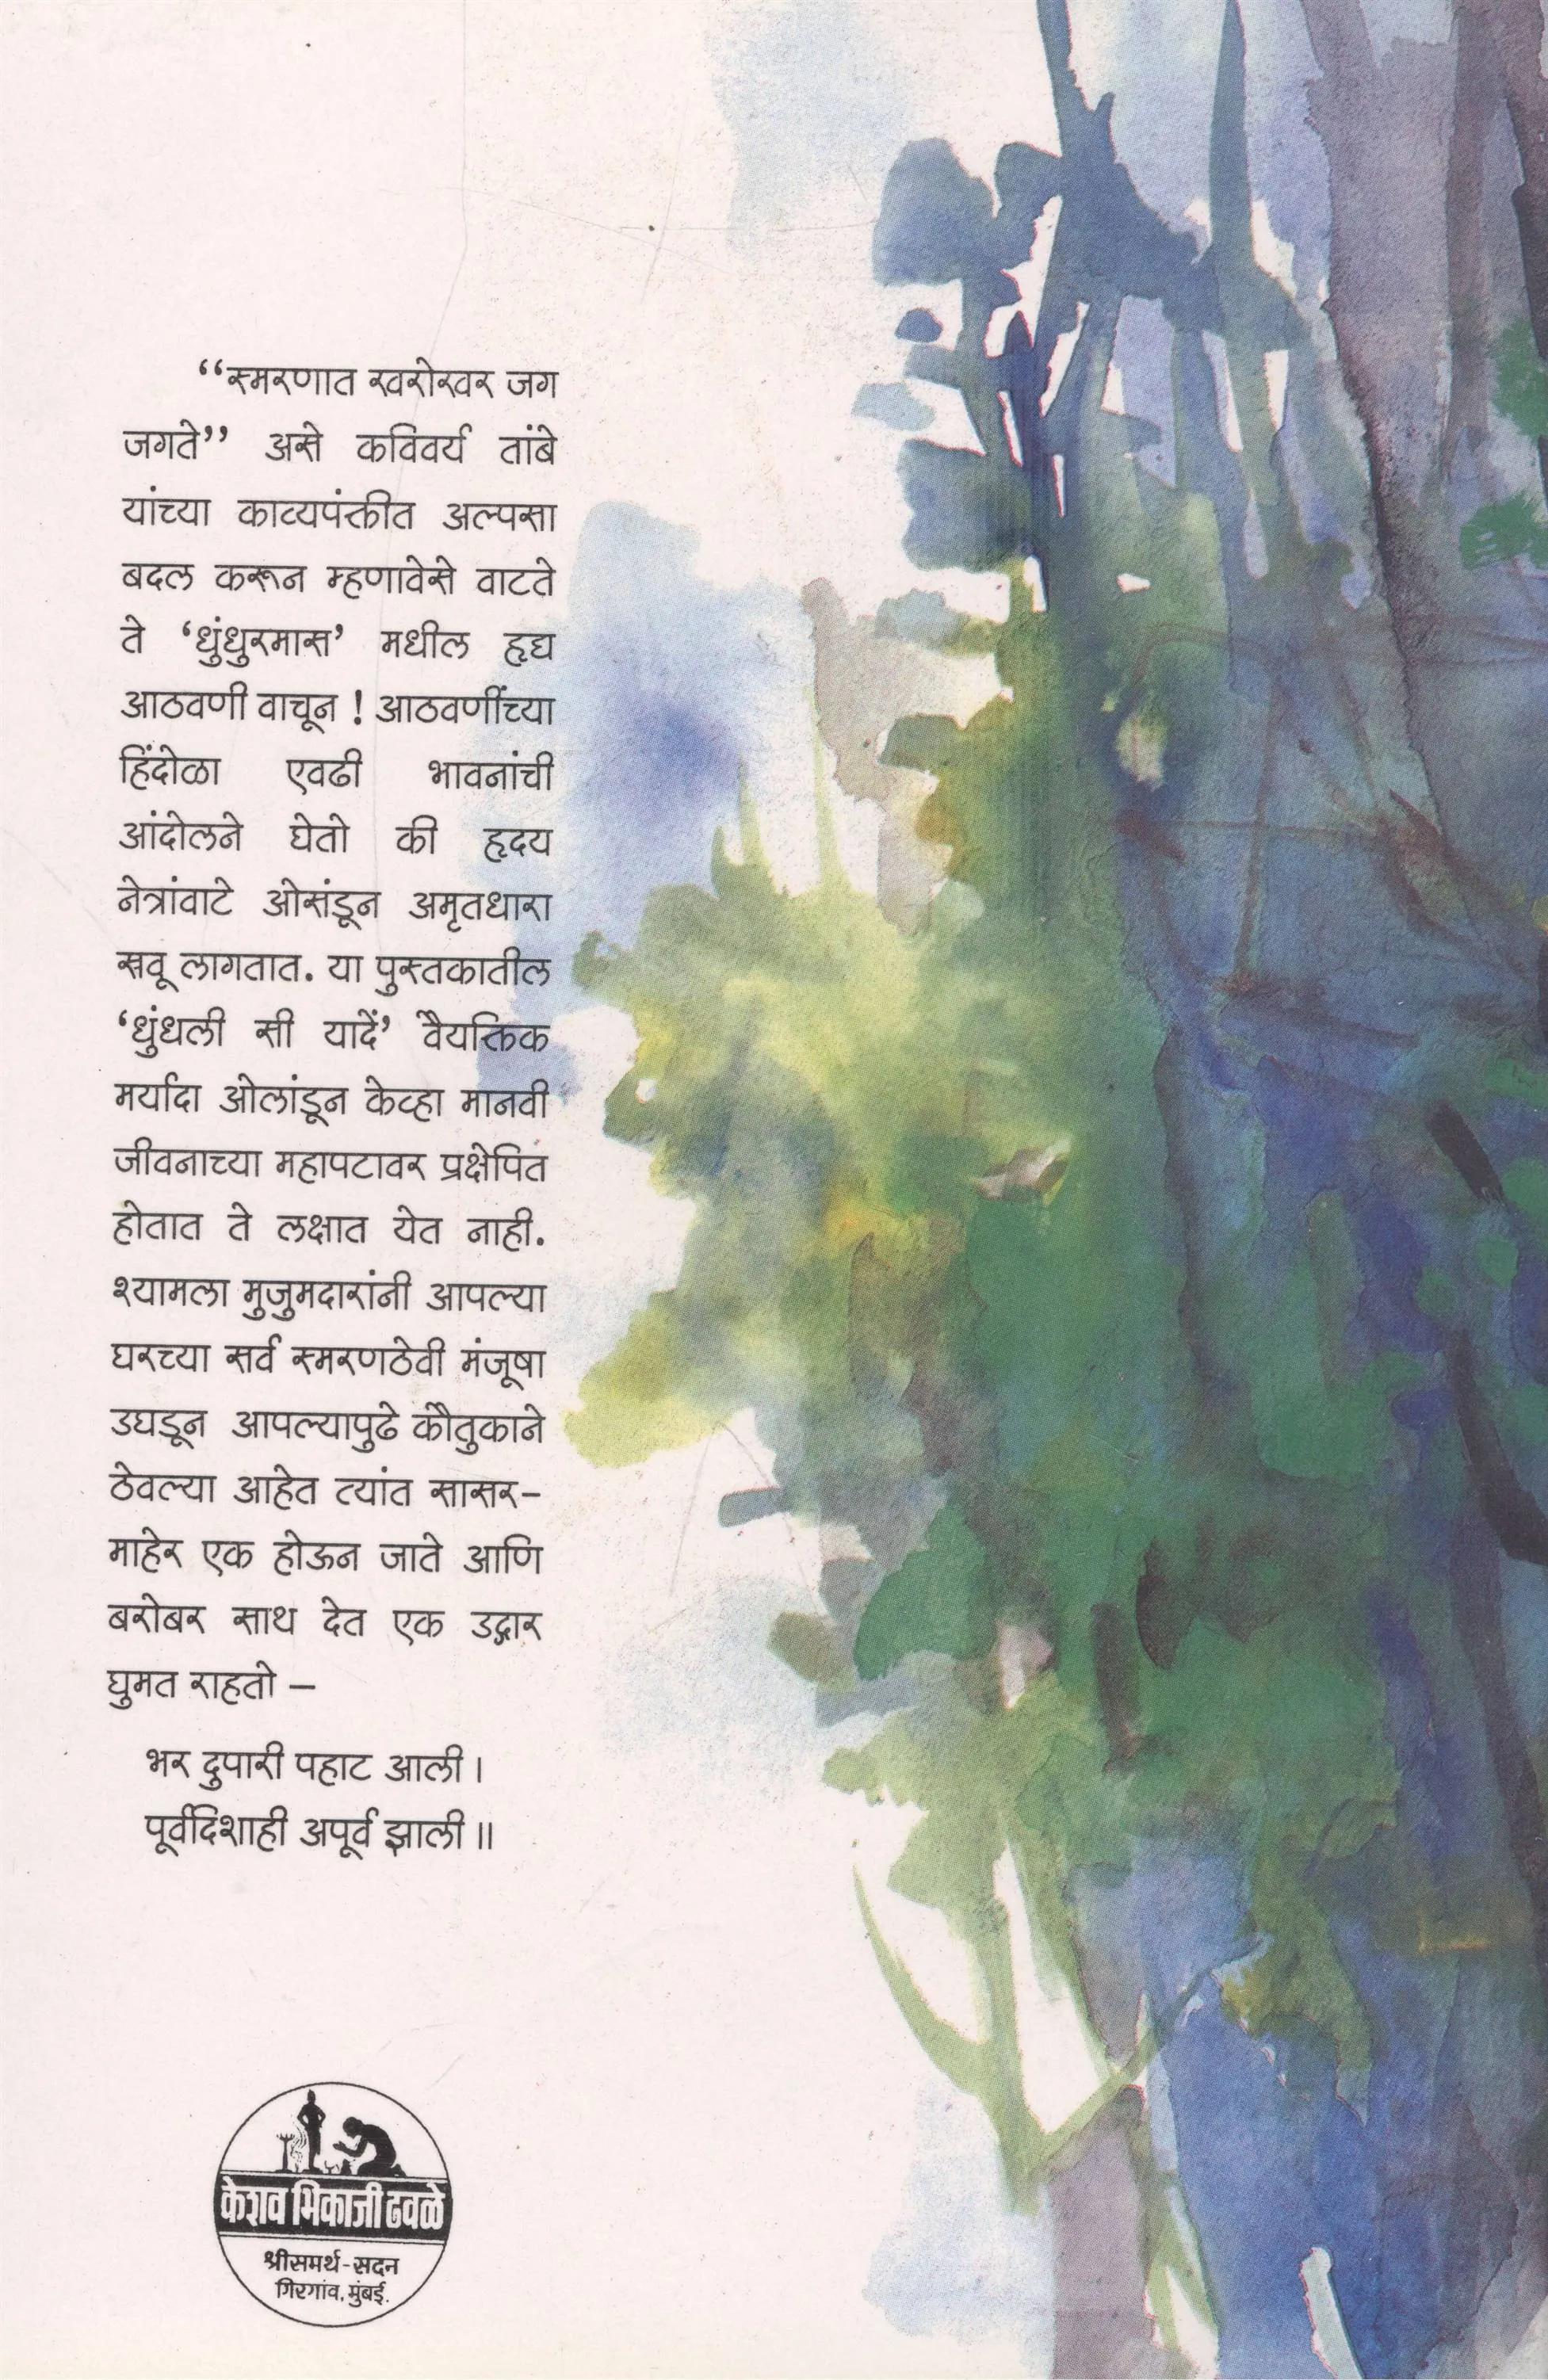 “स्मरणात खरोखर जग
जगते” असे कविवर्य तांबे
यांच्या काव्यपंक्तीत अल्पसा
बदल करून म्हणावेसे वाटते
ते ‘धुंधुरमास’ मधील हृद्य
आठवणी वाचून ! आठवणींच्या
हिंदोळा एवढी भावनांची
आंदोलने घेतो की हृदय
नेत्रांवाटे ओसंडून अमृतधारा
स्रवू लागतात. या पुस्तकातील
‘धुंधली सी यादें’ वैयक्तिक
मर्यादा ओलांडून केव्हा मानवी
जीवनाच्या महापटावर प्रक्षेपित
होतात ते लक्षात येत नाही.
श्यामला मुजुमदारांनी आपल्या
घरच्या सर्व स्मरणठेवी मंजूषा
उघडून आपल्यापुढे कौतुकाने
ठेवल्या आहेत त्यांत सासर–
माहेर एक होऊन जाते आणि
बरोबर साथ देत एक उद्गार
घुमत राहतो –
भर दुपारी पहाट आली ।
पूर्वदिशाही अपूर्व झाली ॥
केशव भिकाजी ढवळे
श्रीसमर्थ-सदन
गिरगांव, मुंबई.